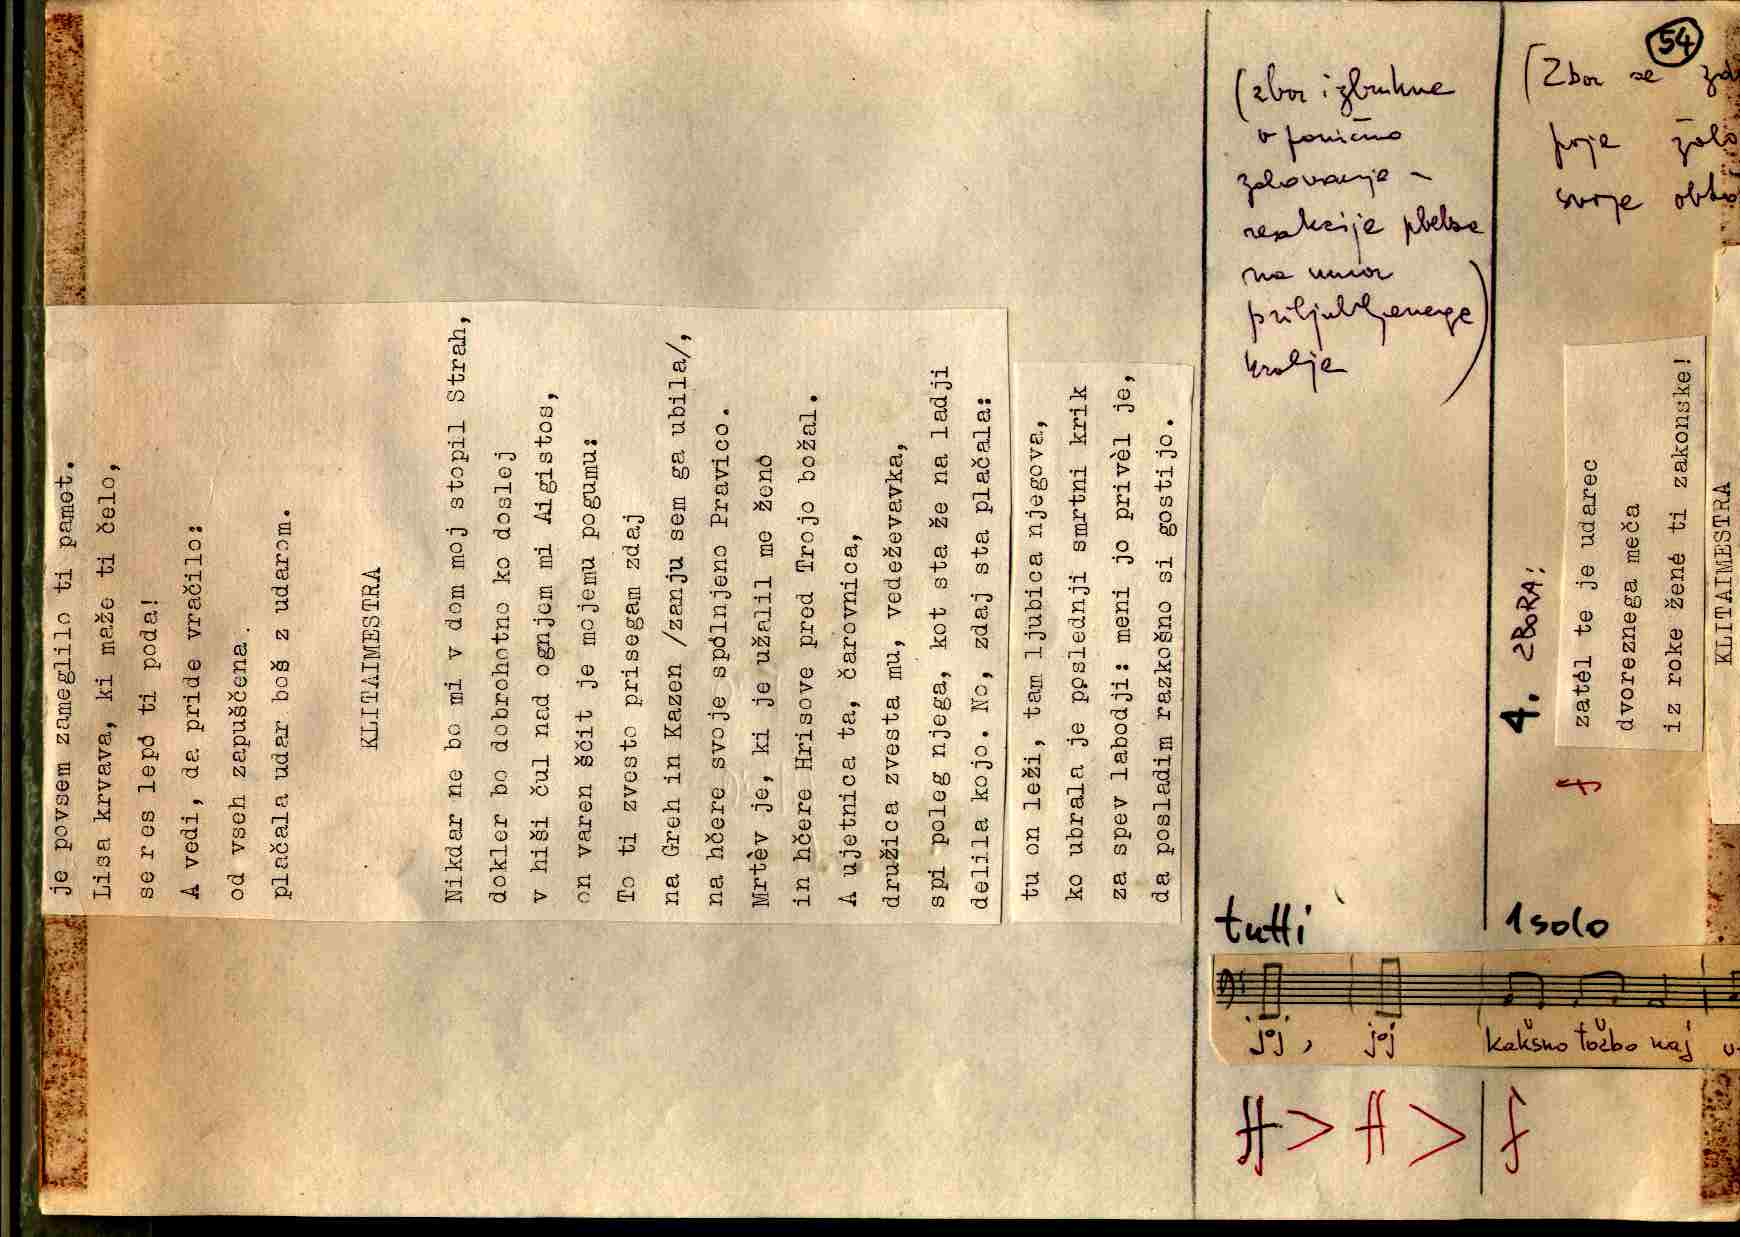 54
je povsem zameglilo ti pamet.
Lisa krvava, ki maže ti čelo,
se res lepó ti poda!
A vedi, da pride vračilo:
od vseh zapuščena
plačala udar boš z udarom.
KLITAIMESTRA
Nikdar ne bo mi v dom moj stopil Strah,
dokler bo dobrohotno ko doslej
v hiši čul nad ognjem mi Aigistos,
on varen ščit je mojemu pogumu:
To ti zvesto prisegam zdaj
na Greh in Kazen /zanju sem ga ubila/,
na hčere svoje spólnjeno Pravico.
Mrtèv je, ki je užalil me ženó
in hčere Hrisove pred Trojo božal.
A ujetnica ta, čarovnica,
družica zvesta mu, vedeževavka,
spi poleg njega, kot sta že na ladji
delila kojo. No, zdaj sta plačala:
tu on leži, tam ljubica njegova,
ko ubrala je poslednji smrtni krik
za spev labodji: meni jo privèl je,
da posladim razkošno si gostijo.
(zbor izbruhne
v panično
zdavanje –
reakcije plebsa
na umor
priljubljenega
kralja)
tutti
joj, joj
ff > ff >
(Zbor se
poje
svoje
4. ZBORA:
f
zatèl te je udarec
dvoreznega meča
iz roke žené ti zakonske!
KLITAIMESTRA
1 solo
kakšno tožbo naj
f